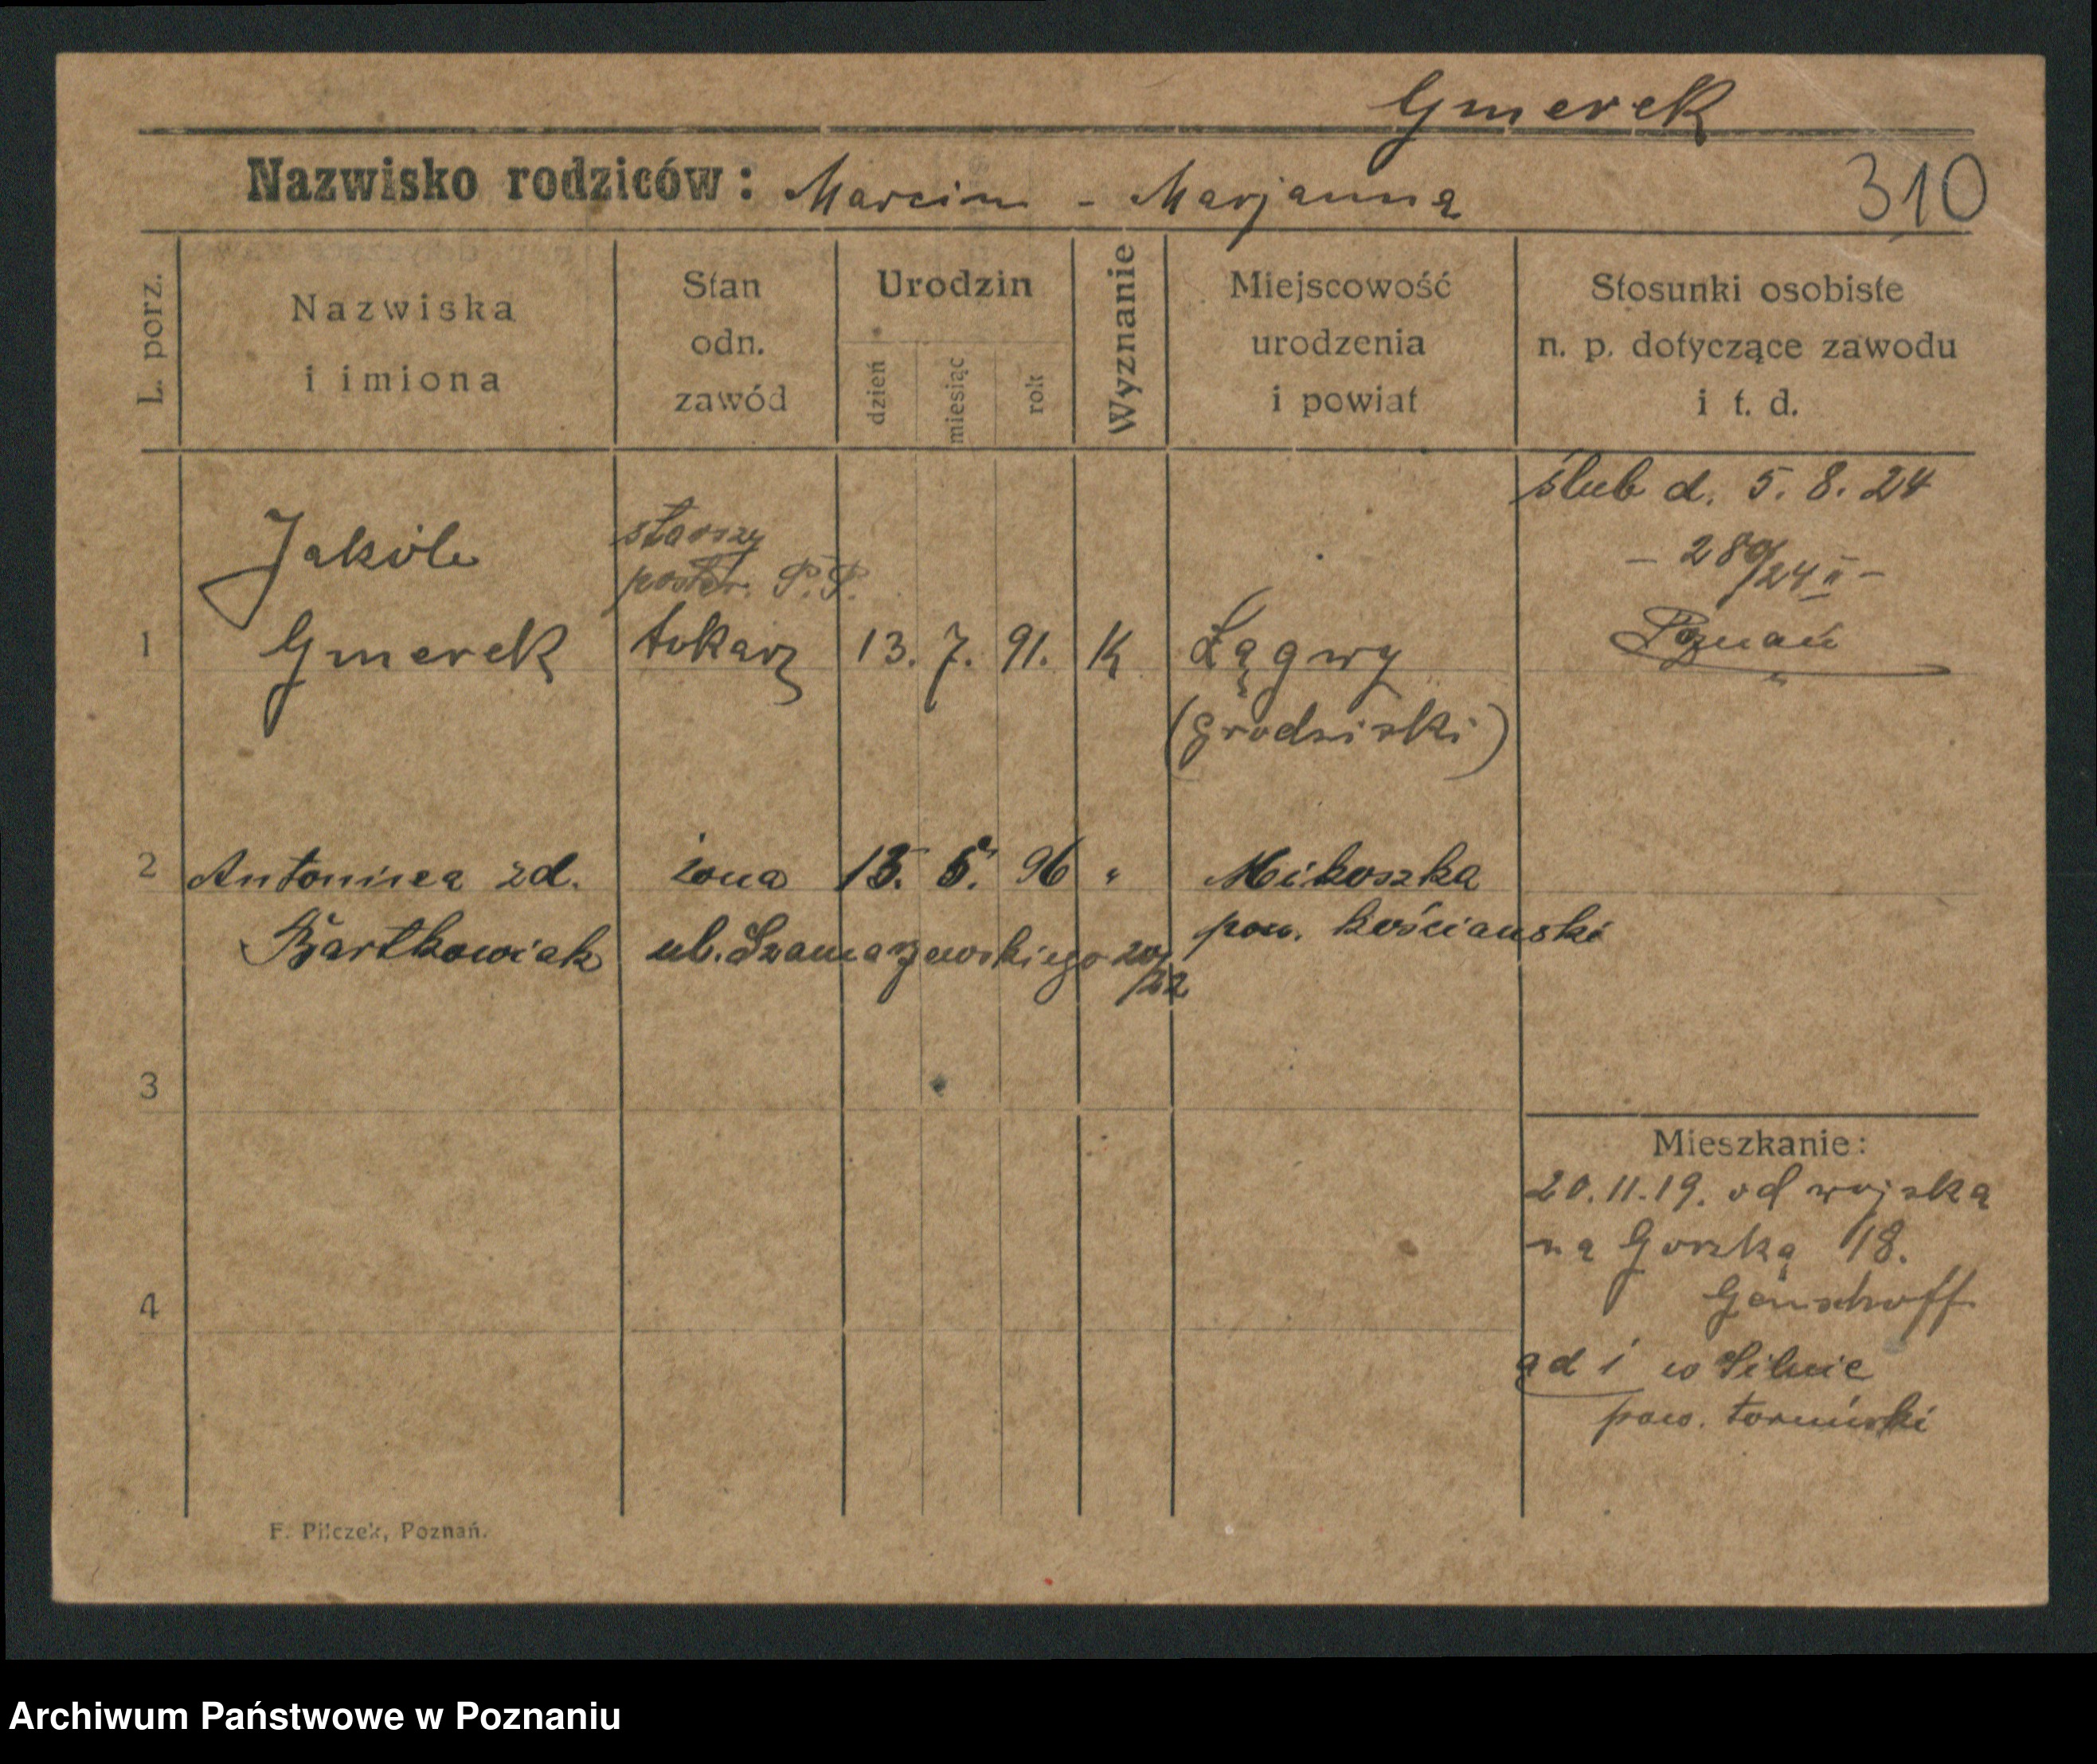 Gmerek
Nazwisko rodziców: Marcin - Marjanna
310
L. porz.
Nazwiska
i imiona
Stan
odn.
zawód
Urodzin
dzień
miesiąc
rok
Wyznanie
Miejscowość
urodzenia
i powiat
Stosunki osobiste
n. p. dotyczące zawodu
i t. d.
ślub d. 5. 8. 24
Poznań
1
Jakób
Gmerek
starszy
poster. P.P.
tokarz
13. 7. 91. K
Łągwy
(grodziski)
2
Antonina zd.
Bartkowiak
żona
96 "
ul. Szamarzewskiego 20/22
Mikoszka
pow. kościański
3
4
Mieszkanie:
20.11.19. od wojska
na Gorzką 18.
ad 1 w Silnie
pow. toruński
F. Pilczek, Poznań.
Archiwum Państwowe w Poznaniu